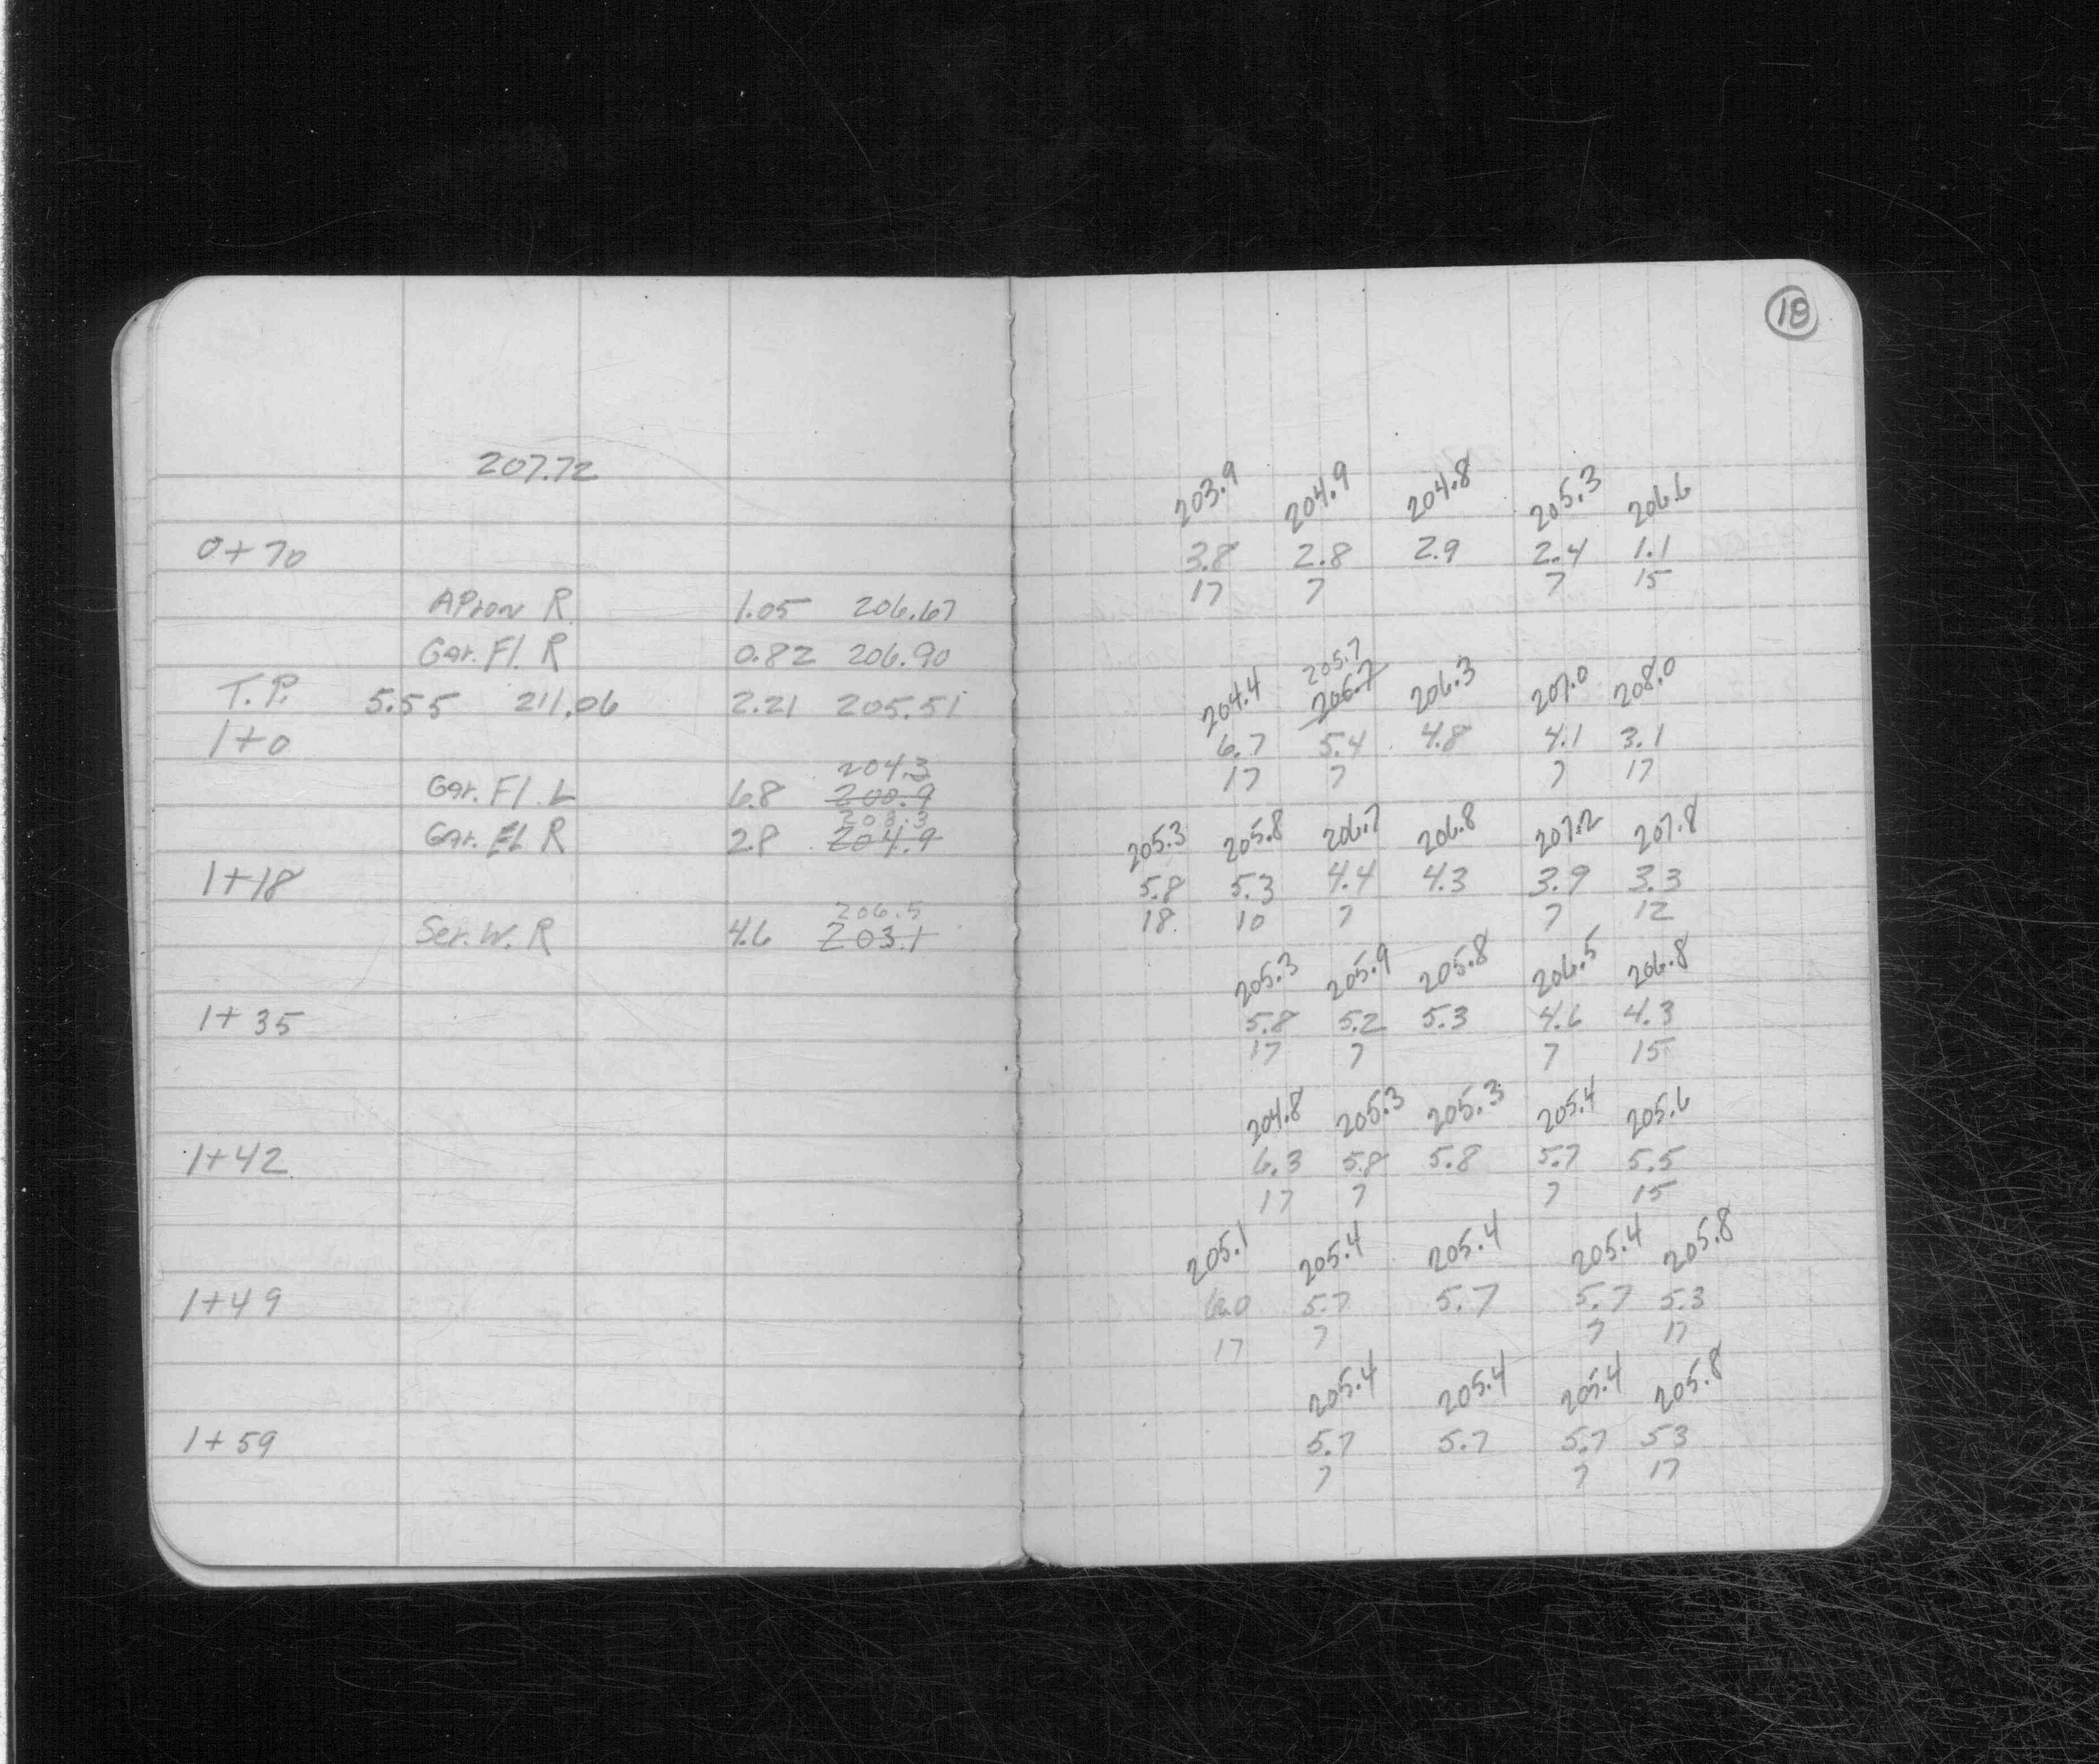 18
207.72
203.9 204.9 204.8 205.3 206.6
0+70 3.8 2.8 2.9 2.4 1.1
17 7 7 15
APron R. 1.05 206.67
Gar. Fl. R 0.82 206.90
205.7
T.P. 5.55 211.06 2.21 205.51 204.4 206.7 206.3 207.0 208.0
1+0 6.7 5.4 4.8 4.1 3.1
17 7 7 17
204.3
Gar. Fl. L 6.8 200.9
208.3
Gar. El. R 2.8 204.9 205.3 205.8 206.7 206.8 207.2 207.8
1+18 5.8 5.3 4.4 4.3 3.9 3.3
18 10 7 7 12
206.5
Ser. W. R 4.6 203.1
205.3 205.9 205.8 206.5 206.8
1+35 5.8 5.2 5.3 4.6 4.3
17 7 7 15
204.8 205.3 205.3 205.4 205.6
1+42 6.3 5.8 5.8 5.7 5.5
17 7 7 15
205.1 205.4 205.4 205.4 205.8
1+49 6.0 5.7 5.7 5.7 5.3
17 7 7 17
205.4 205.4 205.4 205.8
1+59 5.7 5.7 5.7 53
7 7 17